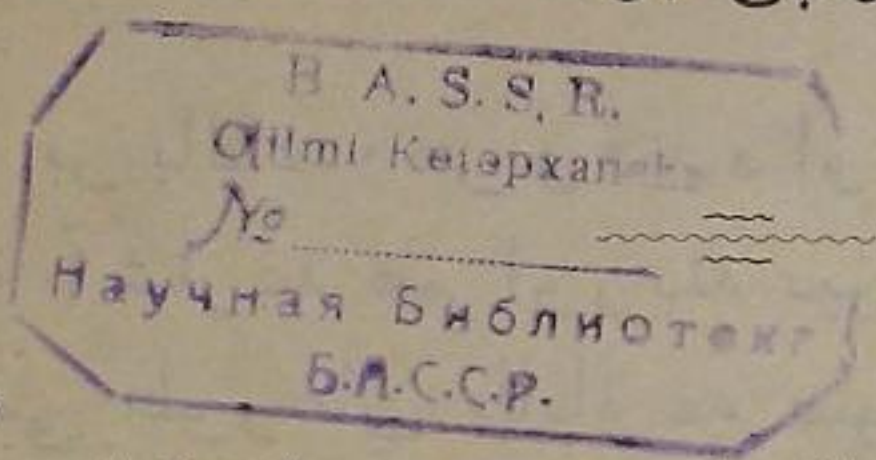 B A. S. S. R.
Ƣilmi Ketəpxan
№
Научная Библиотека
Б.А.С.С.Р.